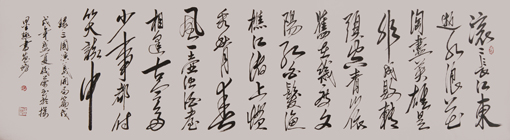 滚滚长江东
逝水浪花
淘尽英雄是
非成败转
头空青山依
旧在几度夕
阳红白发渔
樵江渚上惯
看秋月春
风一壶浊酒喜
相逢古今多
少事都付
笑谈中
录三国演义开篇词